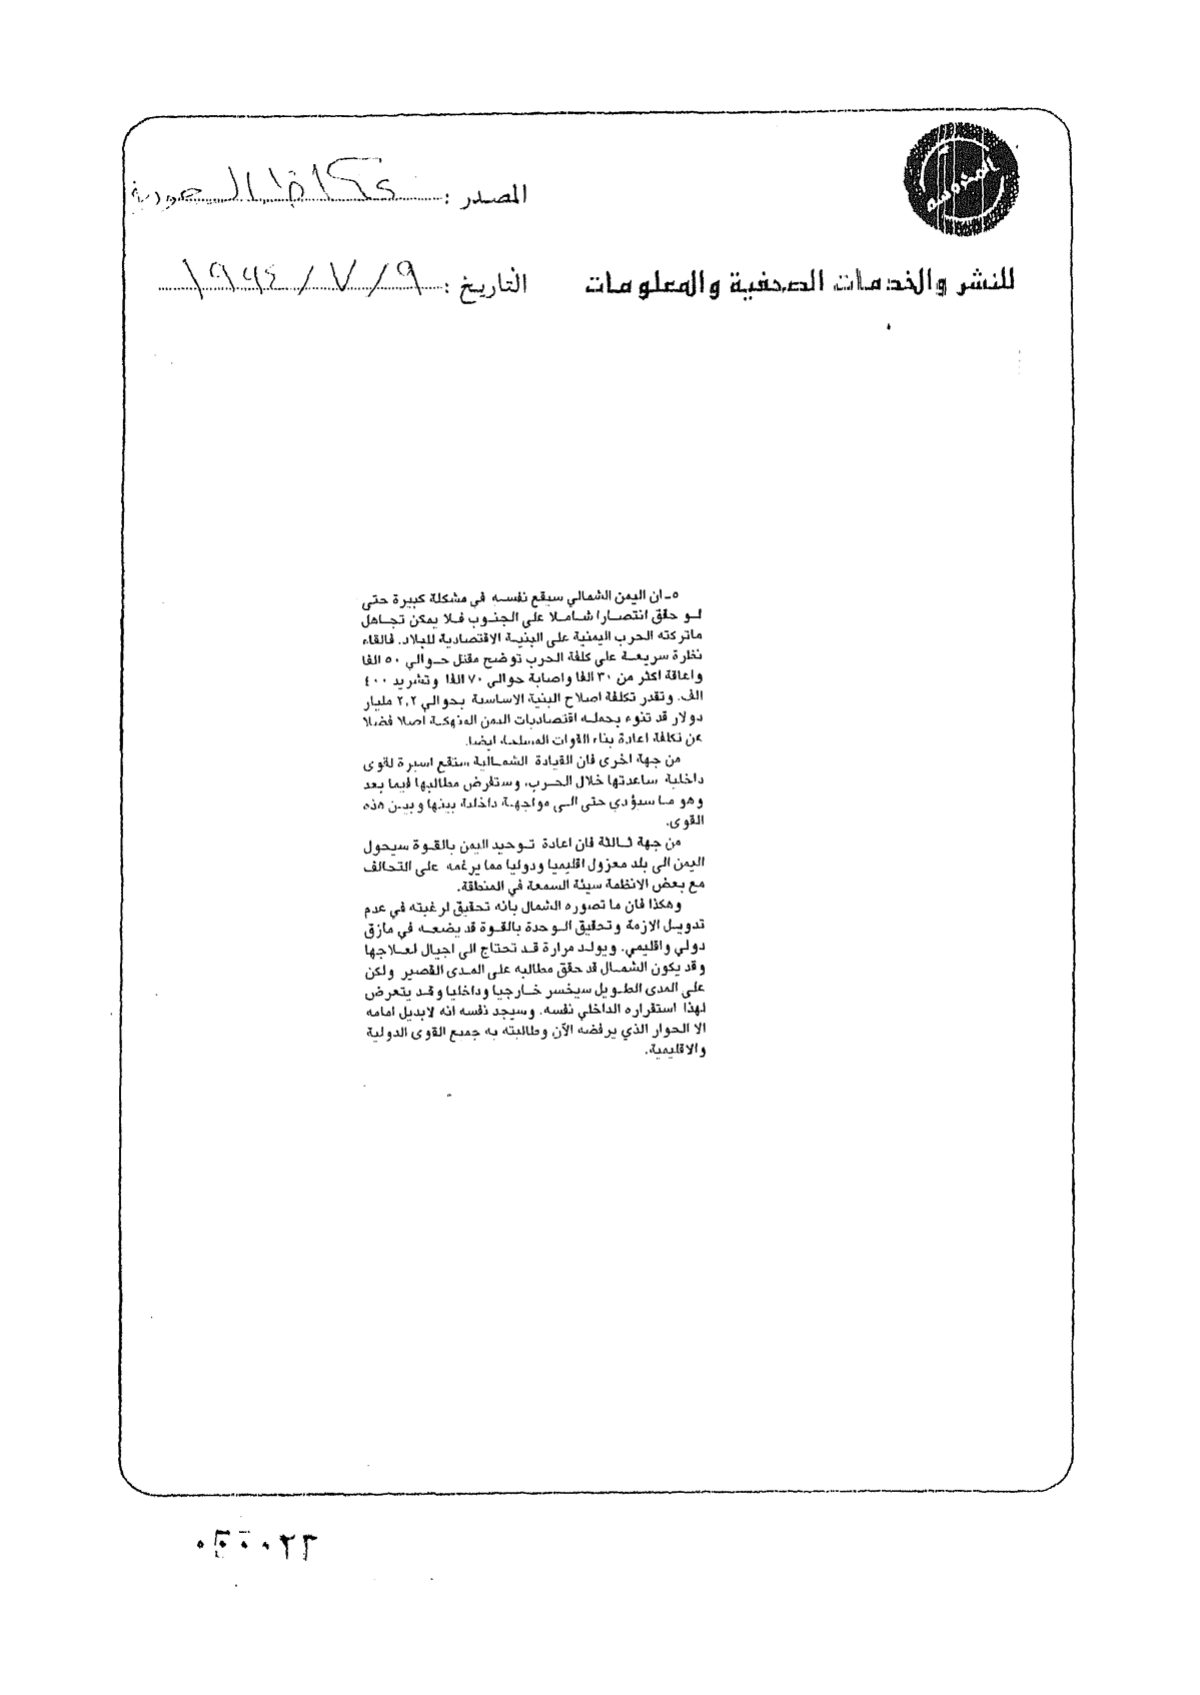 المصدر : عكاظ السعودية
التاريخ : ٩ / ٧ / ١٩٩٤
للنشر والخدمات الصحفية والمعلومات
٥ـ ان اليمن الشمالي سيقع نفسـه في مشكلة كبيرة حتى
لـو حقق انتصـارا شـاملا على الجنـوب فـلا يمكن تجـاهل
ماتركته الحرب اليمنية على البنيـة الاقتصادية للبلاد. فالقاء
نظرة سريعـة على كلفة الحرب توضح مقتل حـوالي ٥٠ الفا
واعاقة اكثر من ٣٠ الفا واصابة حوالى ٧٠ الفا وتشريد ٤٠٠
الف. وتقدر تكلفة اصلاح البنية الاساسية بحوالي ٢,٢ مليار
دولار قد تنوء بحملـه اقتصاديات اليمن المنهكـة اصلا فضلا
عن تكلفة اعادة بناء القوات المسلحـة ايضا.
من جهة اخرى فان القيادة الشمـالية ستقع اسيرة لقوى
داخلية ساعدتها خلال الحـرب، وستفرض مطالبها فيما بعد
وهو مـا سيؤدي حتى الـى مواجهـة داخلية بينها وبيـن هذه
القوى.
من جهة ثـالثة فان اعادة تـوحيد اليمن بالقـوة سيحول
اليمن الى بلد معزول اقليميا ودوليا مما يرغمه على التحالف
مع بعض الانظمة سيئة السمعة في المنطقة.
وهكذا فان ما تصوره الشمال بانه تحقيق لرغبته في عدم
تدويـل الازمة وتحقيق الـوحدة بالقـوة قد يضعـه في مازق
دولي واقليمي. ويولـد مرارة قـد تحتاج الى اجيال لعـلاجها
وقد يكون الشمـال قد حقق مطالبه على المـدى القصير ولكن
على المدى الطـويل سيخسر خـارجيا وداخليا وقـد يتعرض
لهذا استقراره الداخلي نفسه. وسيجد نفسه انه لابديل امامه
الا الحوار الذي يرفضه الآن وطالبته به جميع القوى الدولية
والاقليمية.